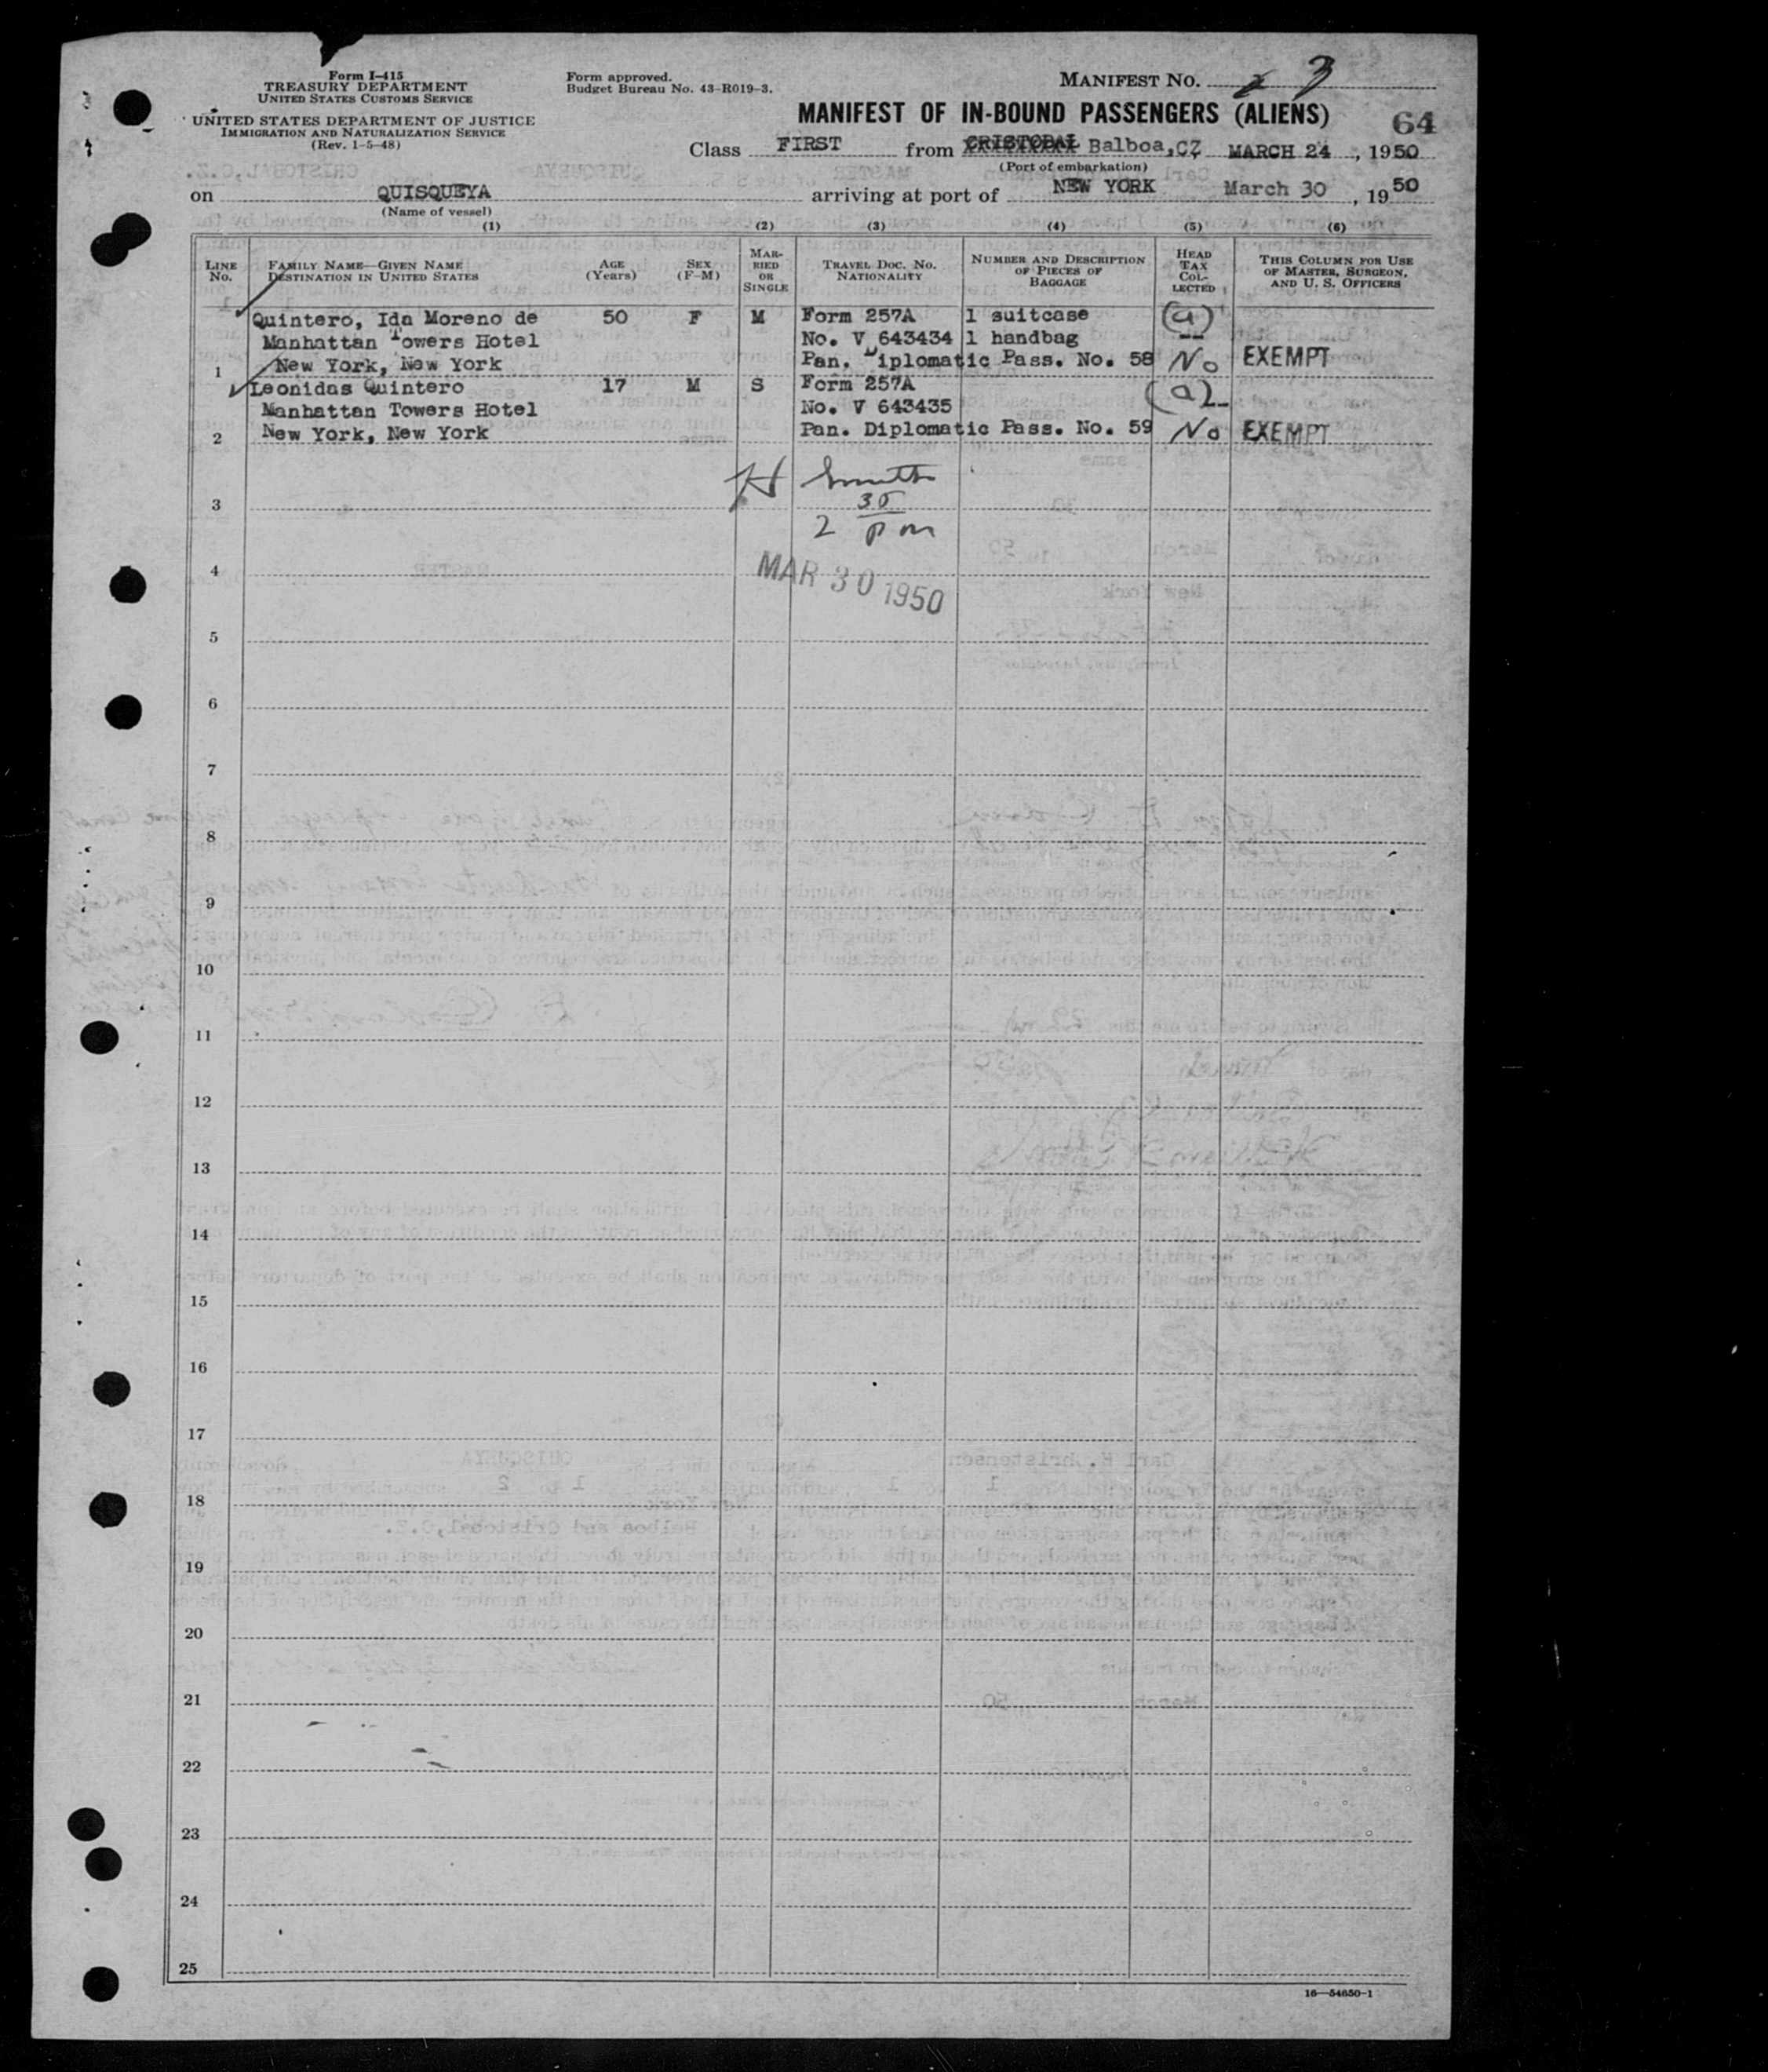 Form I-415
TREASURY DEPARTMENT
UNITED STATES CUSTOMS SERVICE
UNITED STATES DEPARTMENT OF JUSTICE
IMMIGRATION AND NATURALIZATION SERVICE
(Rev. 1-5-48)
Form approved.
Budget Bureau No. 43-R019-3.
MANIFEST NO. 3
MANIFEST OF IN-BOUND PASSENGERS (ALIENS)
64
Class FIRST from CRISTOBAL Balboa,CZ MARCH 24, 1950
(Port of embarkation)
on QUISQUEYA arriving at port of NEW YORK March 30, 1950
(Name of vessel)
(1) (2) (3) (4) (5) (6)
LINE No. FAMILY NAME—GIVEN NAME DESTINATION IN UNITED STATES AGE (Years) SEX (F-M) MARRIED OR SINGLE TRAVEL DOC. NO. NATIONALITY NUMBER AND DESCRIPTION OF PIECES OF BAGGAGE HEAD TAX COLLECTED THIS COLUMN FOR USE OF MASTER, SURGEON, AND U. S. OFFICERS
Quintero, Ida Moreno de 50 F M Form 257A 1 suitcase (a)
Manhattan Towers Hotel No. V 643434 1 handbag
1 New York, New York Pan. Diplomatic Pass. No. 58 No EXEMPT
Leonidas Quintero 17 M S Form 257A (a)
Manhattan Towers Hotel No. V 643435
2 New York, New York Pan. Diplomatic Pass. No. 59 No EXEMPT
H Smith
3
2 30 pm
4
MAR 30 1950
5
6
7
8
9
10
11
12
13
14
15
16
17
18
19
20
21
22
23
24
25
16—54650-1